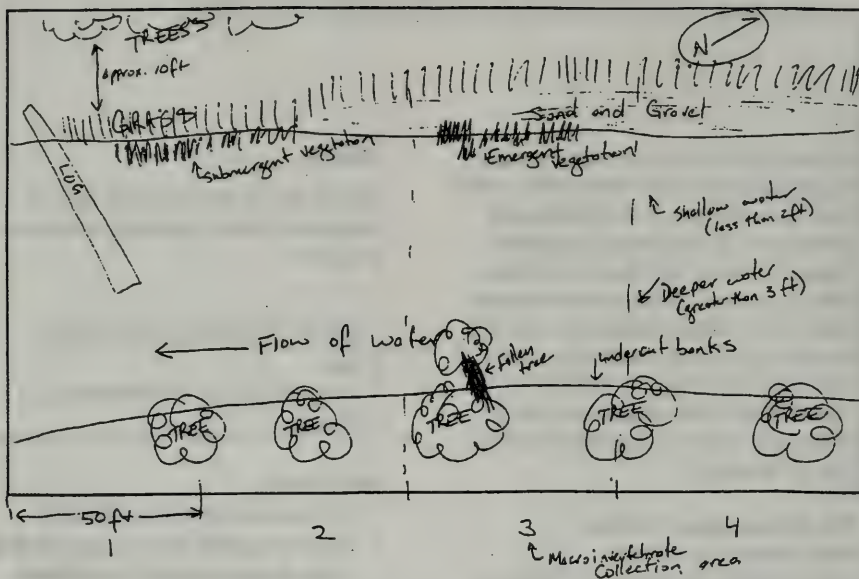 TREES
Approx. 10ft
N
GRASS
Sand and Gravel
LOG
Submergent vegetation
Emergent
vegetation
Shallow water
(less than 2ft)
Deeper water
(greater than 3 ft)
Flow of water
Fallen
tree
Undercut banks
TREE
TREE
TREE
TREE
TREE
50ft
1
2
3
4
Macroinvertebrate
Collection area